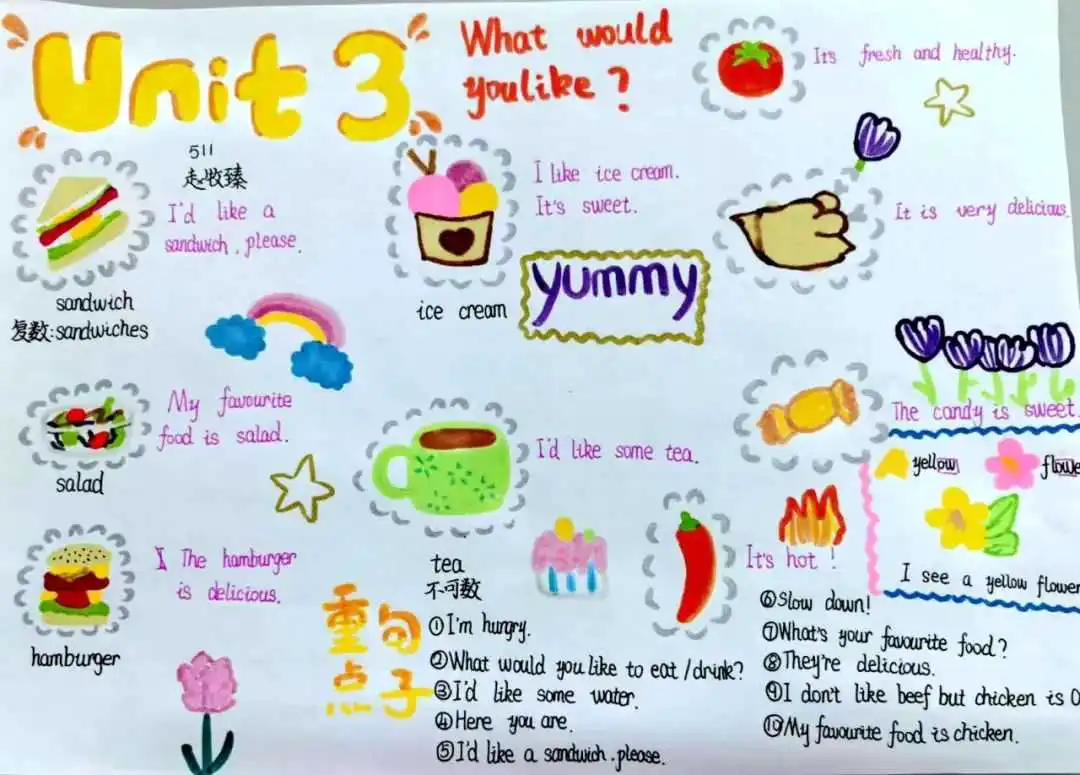 Unit 3
What would
you like?
It's fresh and healthy.
511
I'd like a
sandwich, please.
sandwich
复数:sandwiches
I like ice cream.
It's sweet.
ice cream
yummy
It is very delicious.
My favourite
food is salad.
salad
I'd like some tea.
tea
不可数
The candy is sweet.
yellow
flowe
I see a yellow flower
The hamburger
is delicious.
hamburger
It's hot!
重点句子
①I'm hungry.
②What would you like to eat/drink?
③I'd like some water.
④Here you are.
⑤I'd like a sandwich, please.
⑥Slow down!
⑦What's your favourite food?
⑧They're delicious.
⑨I don't like beef but chicken is O
⑩My favourite food is chicken.